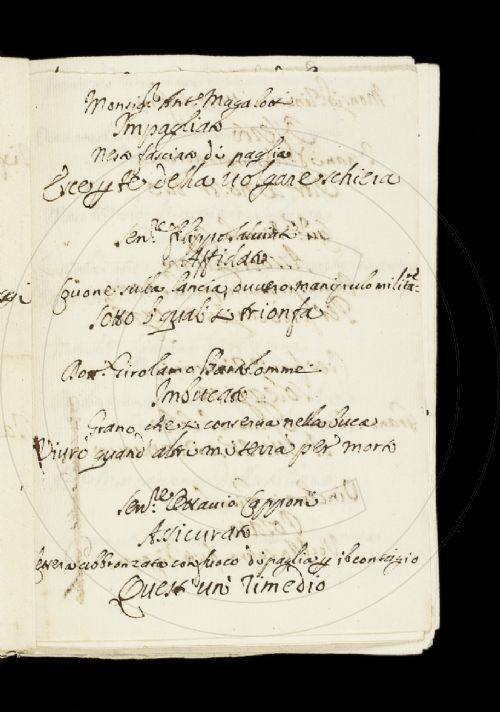 Monsig.r Ant.o Magalotti
Impagliato
Neve fasciata di paglia
Esce p te della volgare schiera
Sen.re Filippo Salviati
Affidato
sulla lancia, ovvero manipulo milita.re
Sotto l qual si trionfa
Dott. Girolamo Bartolommei
Imbucato
Grano, che si conserva nella buca
Vivrò quand altri mi terrà per morto
Sen.re Ottavio Capponi
Assicurato
abbronzata con fuoco di paglia p il contagio
Quest' un' rimedio